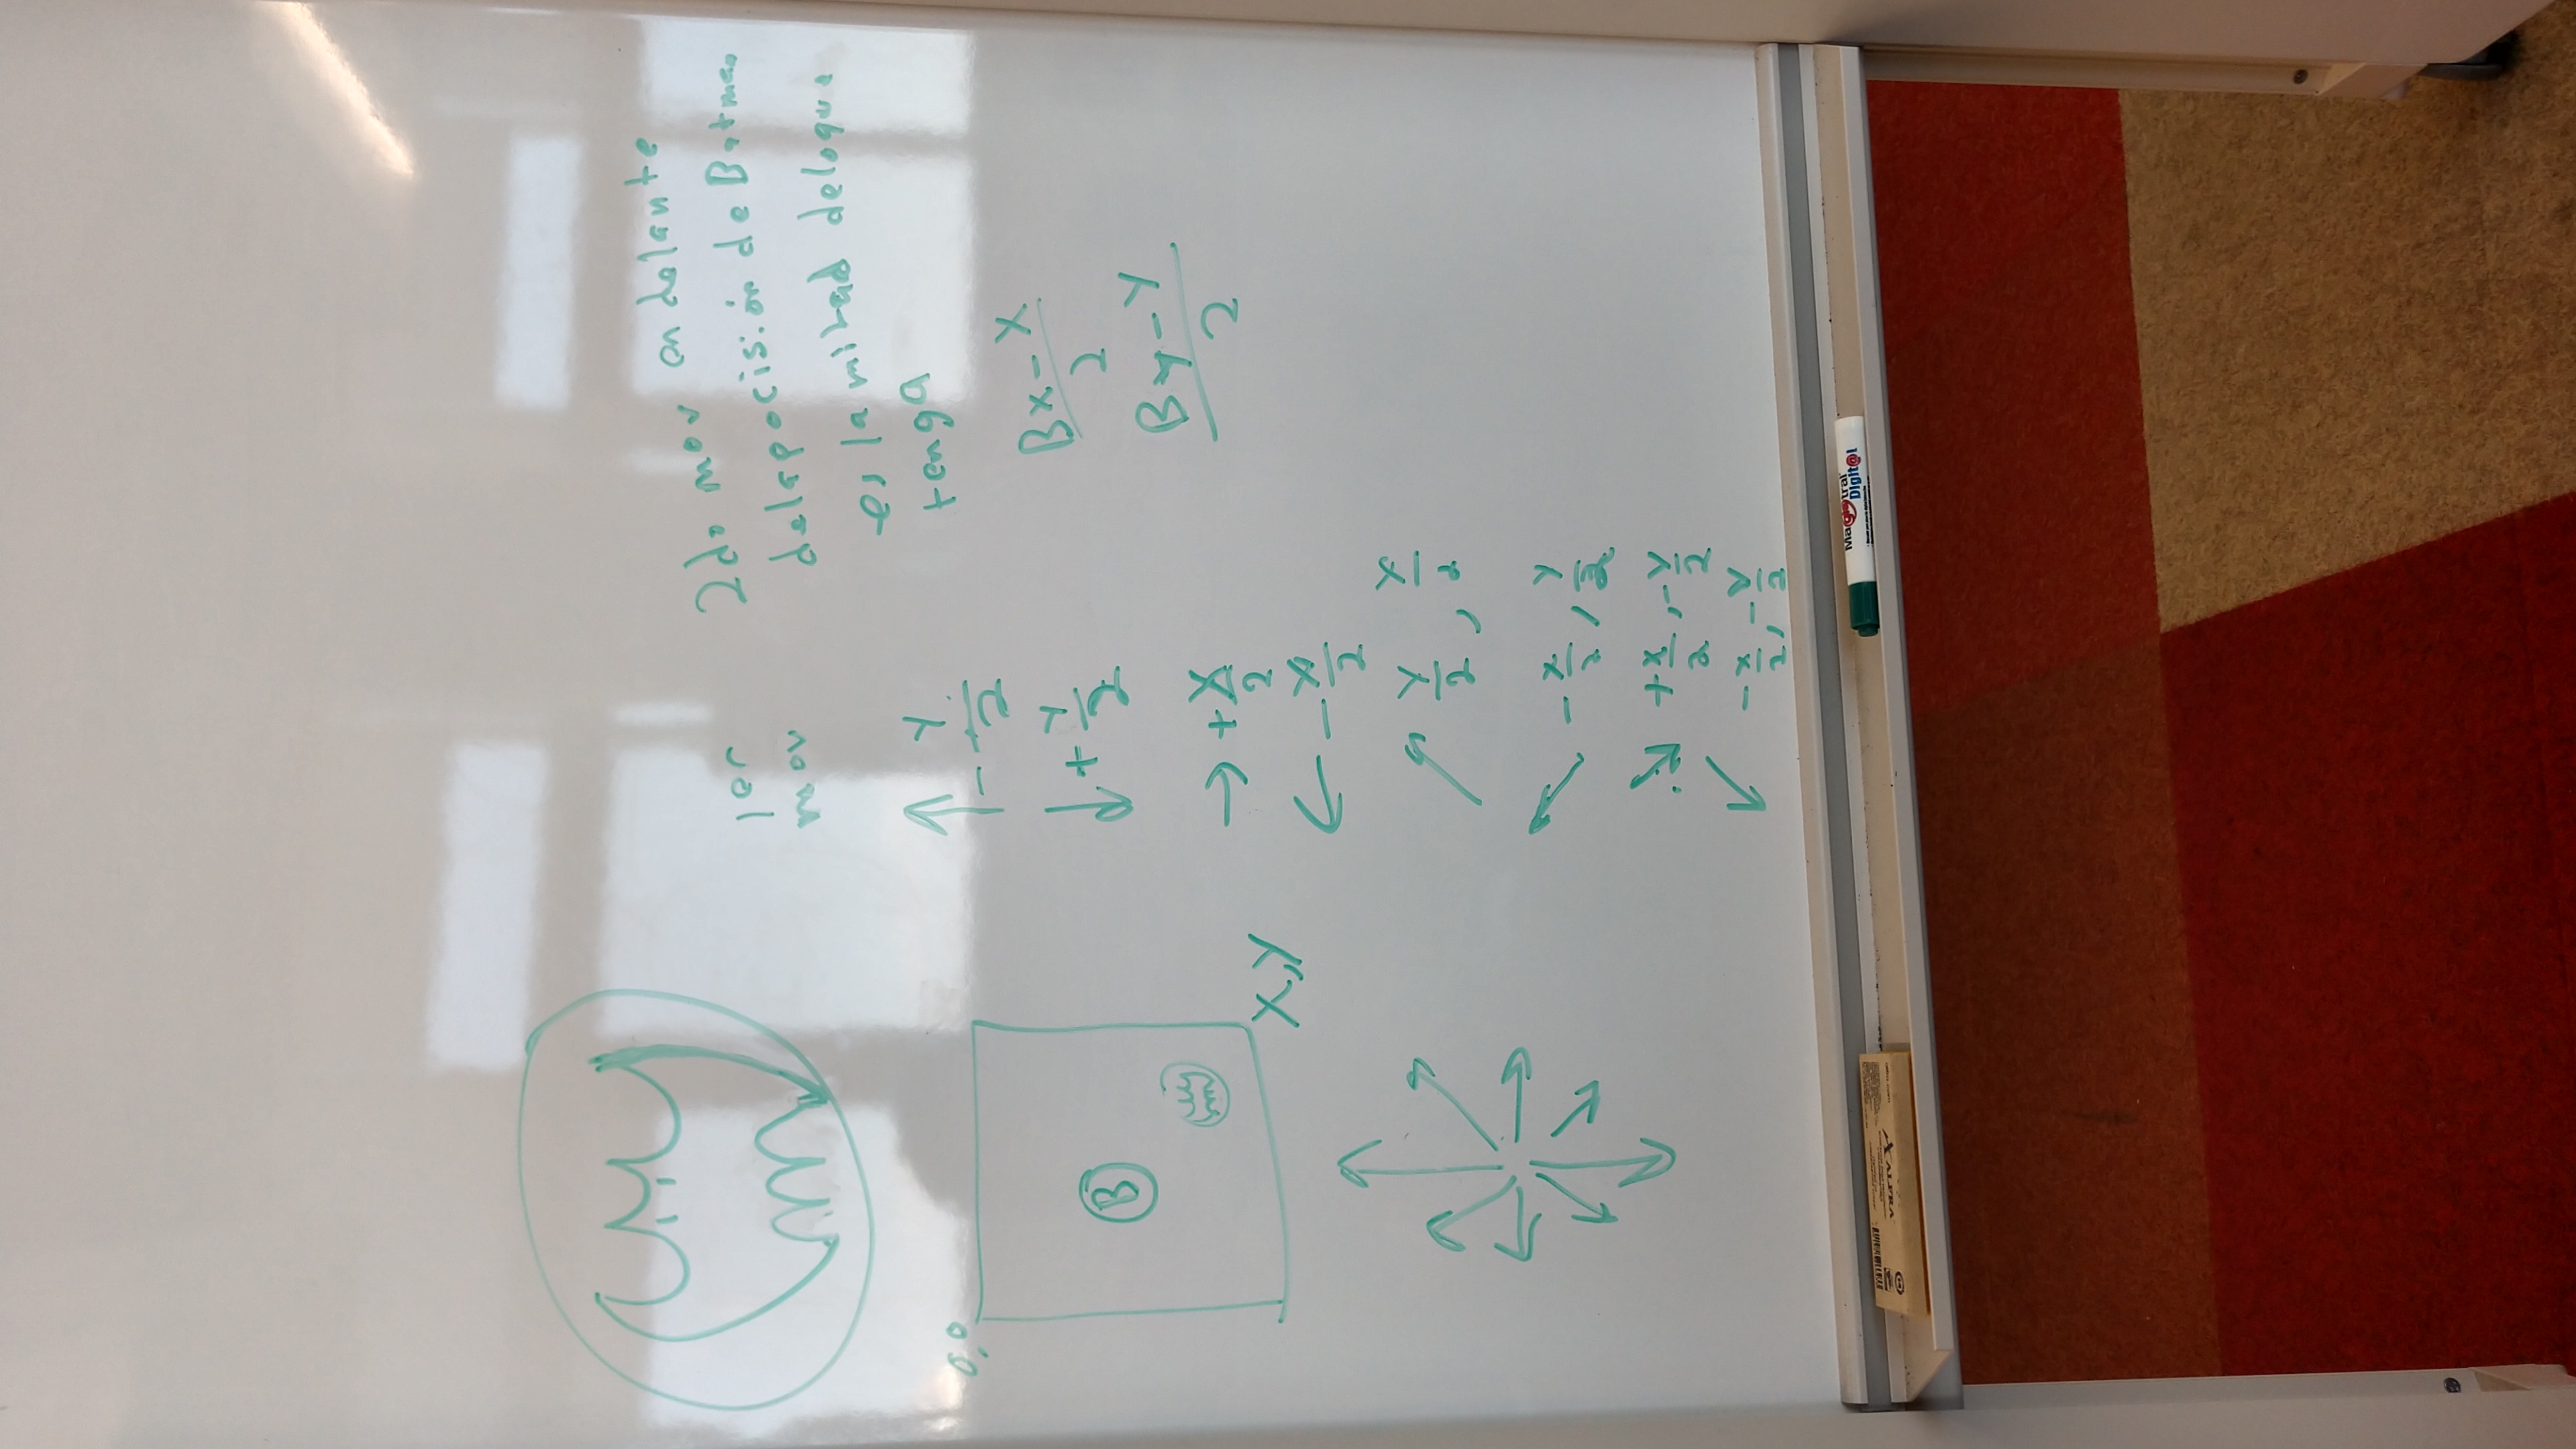 0,0
B
X,Y
1er
mov
- Y/2
+ Y/2
+ X/2
- X/2
Y/2, X/2
- X/2, Y/2
+ X/2, - Y/2
- X/2, - Y/2
2do mov en delante
delapocisión de Batman
es la mitad deloque
tenga
Bx - X
2
By - Y
2
ALPRA
Magistral
Digit@l